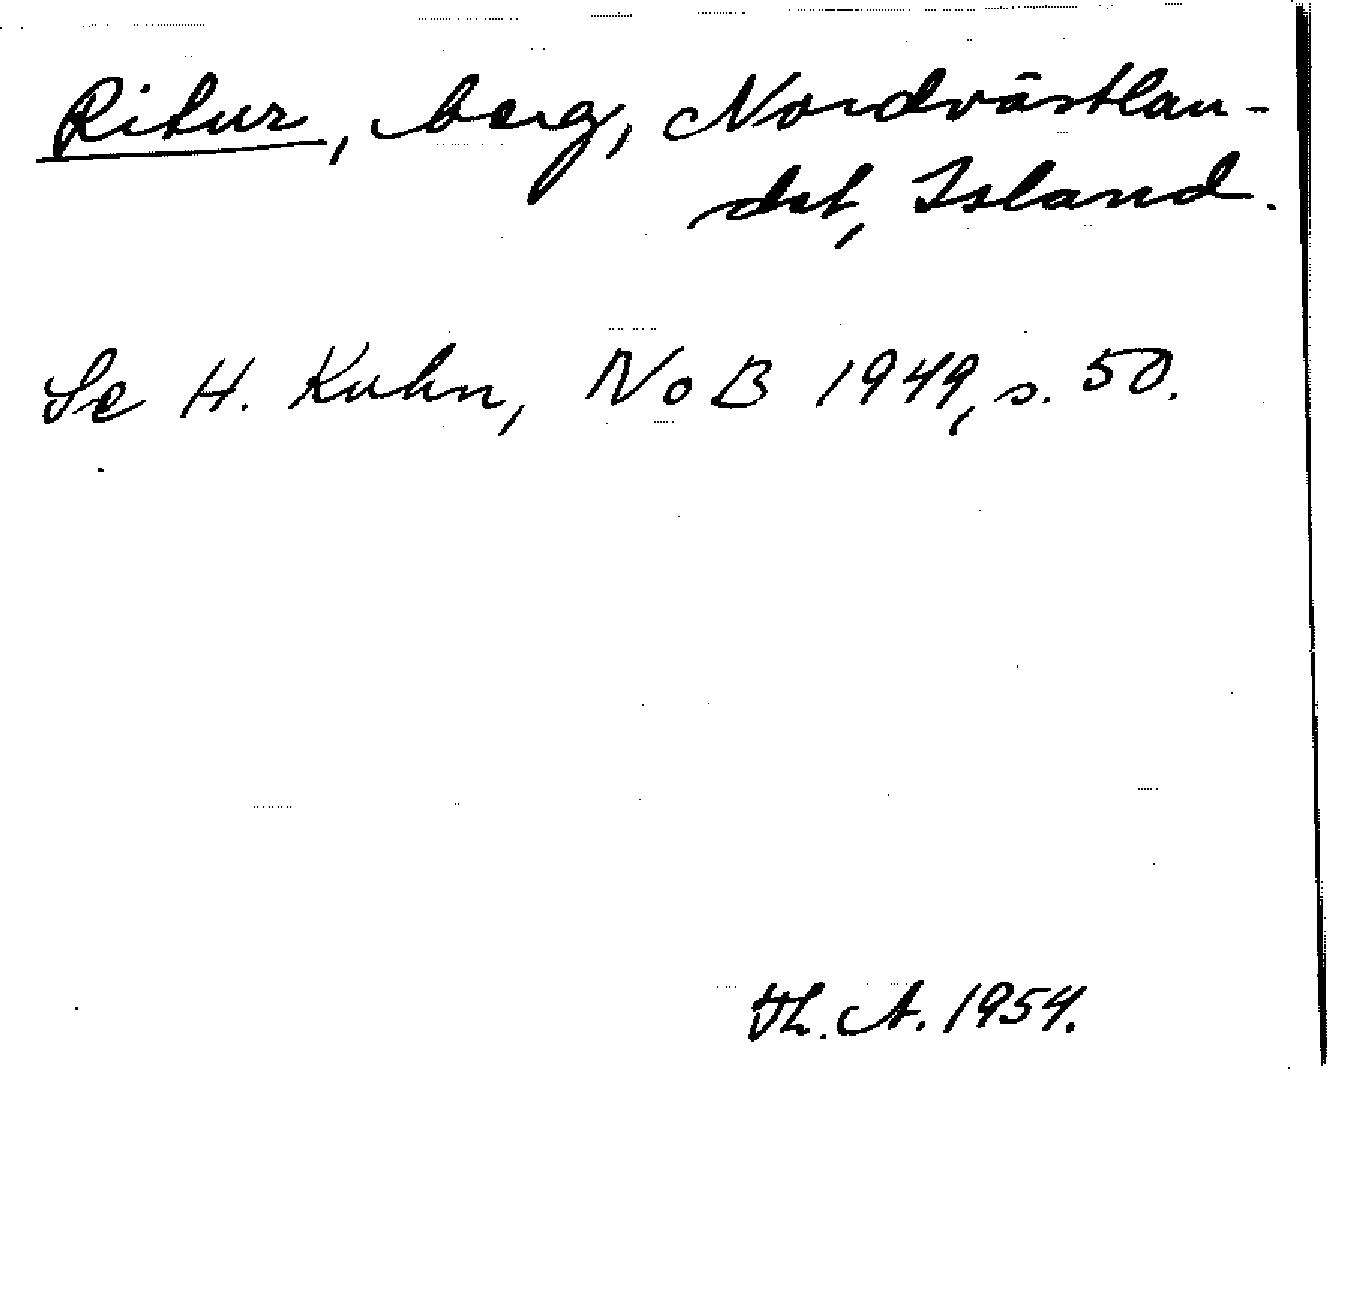 Ritur, berg, Nordvästlan-
det, Island.
Se H. Kuhn, NoB 1949, s. 50.
Th. A. 1954.